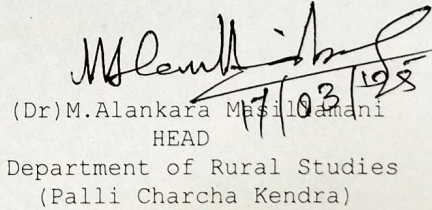 17/03/125
(Dr)M.Alankara Masillamani
HEAD
Department of Rural Studies
(Palli Charcha Kendra)